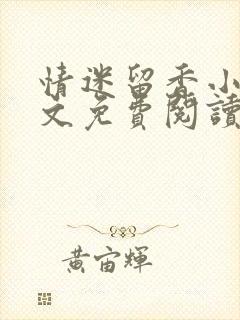 情迷留香小
文免費閱讀
黃宙輝